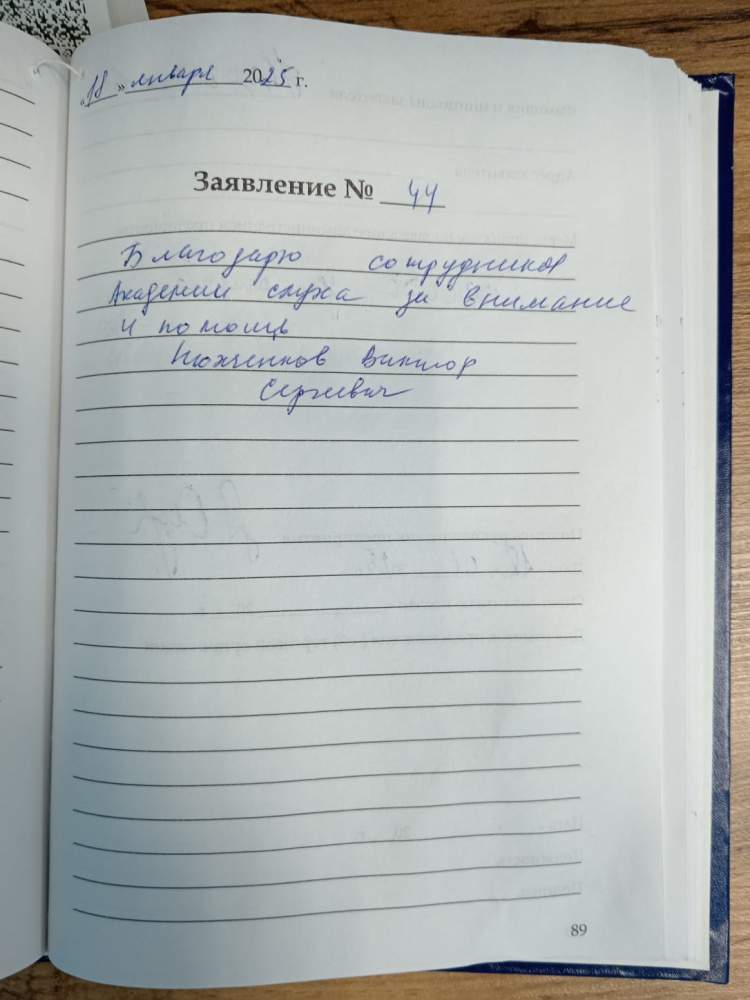 «18» января 2025 г.
Заявление № 44
Благодарю сотрудников
Академии слуха за внимание
и помощь
Виктор
Сергеевич
89